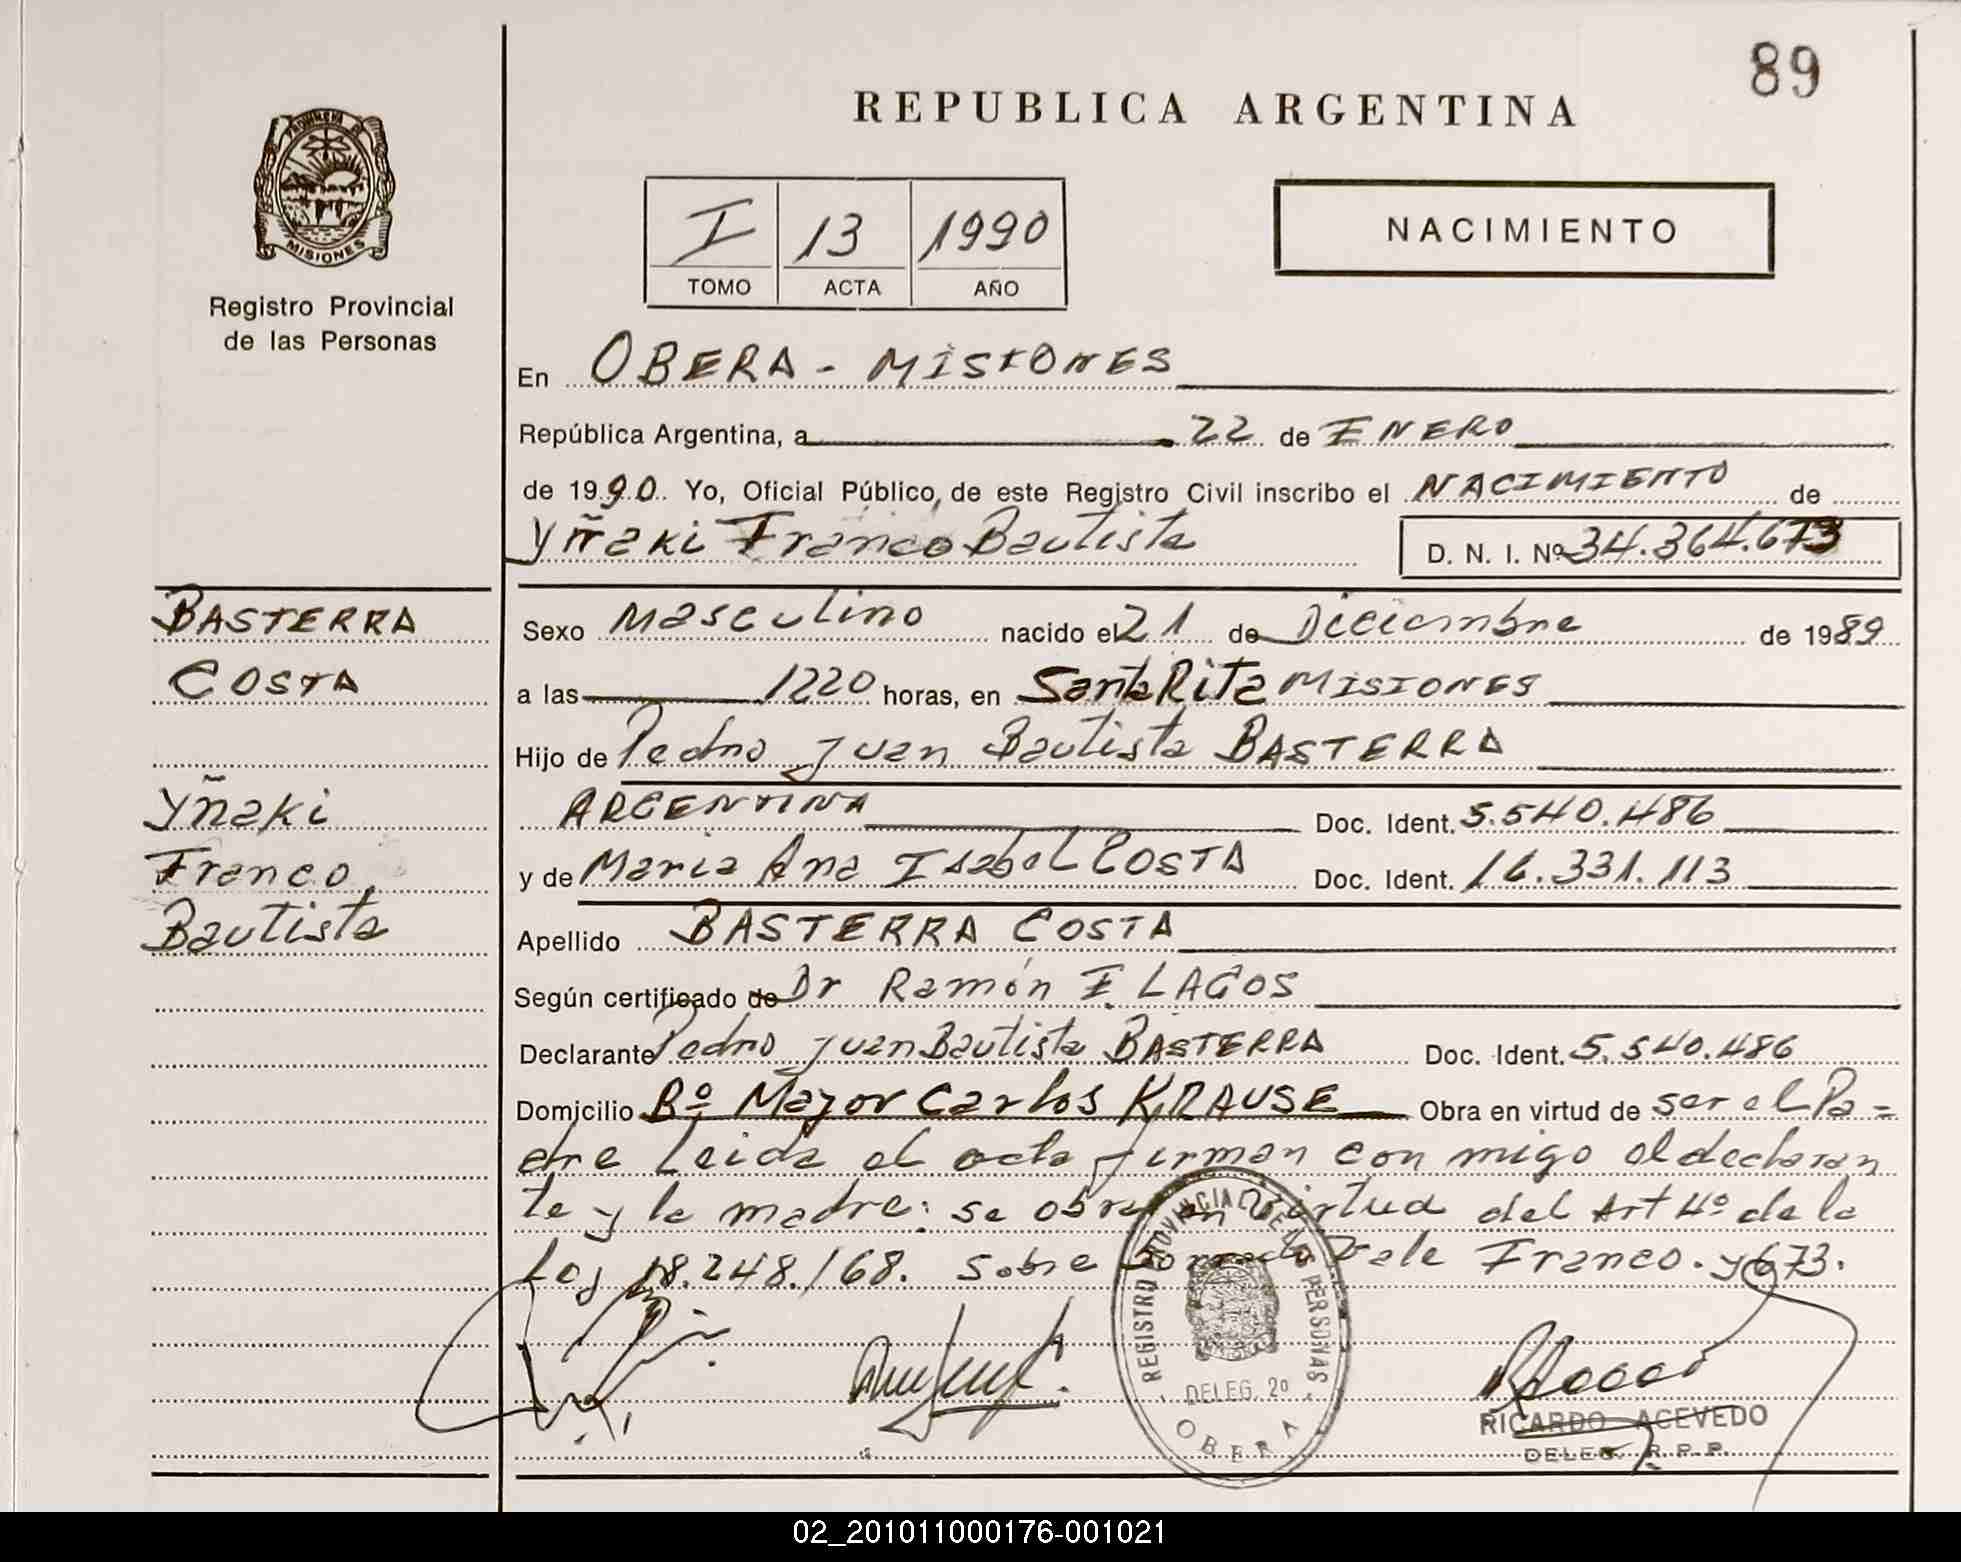 89
REPUBLICA ARGENTINA
PROVINCIA DE
MISIONES
Registro Provincial
de las Personas
I 13 1990
TOMO ACTA AÑO
NACIMIENTO
En OBERA - MISIONES
República Argentina, a 22 de ENERO
de 1990. Yo, Oficial Público, de este Registro Civil inscribo el NACIMIENTO de
Yñaki Franco Bautista D. N. I. Nº 34.364.673
BASTERRA
COSTA
Yñaki
Franco,
Bautista
Sexo Masculino nacido el 21 de Diciembre de 1989
a las 1220 horas, en Santa Rita MISIONES
Hijo de Pedro Juan Bautista BASTERRA
ARGENTINA Doc. Ident. 5.540.486
y de Maria Ana Isabel COSTA Doc. Ident. 16.331.113
Apellido BASTERRA COSTA
Según certificado de Dr Ramón I. LAGOS
Declarante Pedro Juan Bautista BASTERRA Doc. Ident. 5.540.486
Domicilio Bº Mayor Carlos KRAUSE Obra en virtud de ser el Pa-
dre Leida el acta firman con migo el declaran
te y la madre: se obra en virtud del Art 4º de la
Ley 18.248/68. Sobre borrado Vale Franco. y 673.
REGISTRO PROVINCIAL DE LAS PERSONAS
DELEG. 2º
OBERA
RICARDO ACEVEDO
DELEG. R.P.P.
02_201011000176-001021